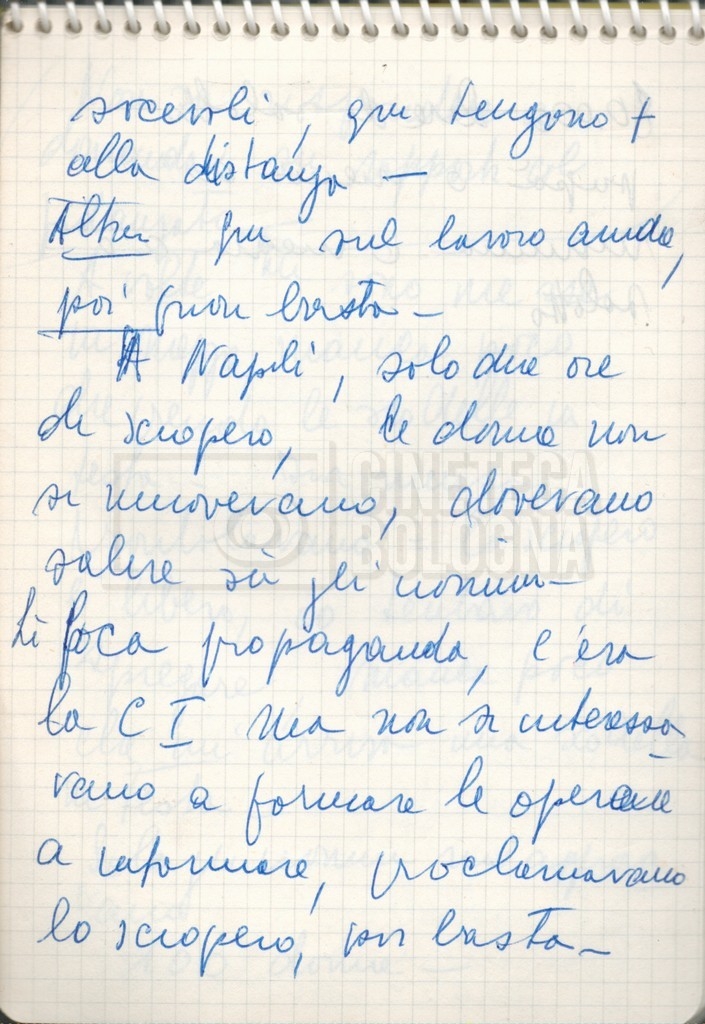 socevoli, qui tengono +
alla distanza —
Altra qui sul lavoro anche,
poi fuori basta —
A Napoli, solo due ore
di sciopero, le donne non
si muovevano, dovevano
salire su gli uomini —
Lì poca propaganda, c'era
la C I ma non si interessa-
vano a formare le operaie
a informare, proclamavano
lo sciopero, poi basta —
CINETECA
BOLOGNA